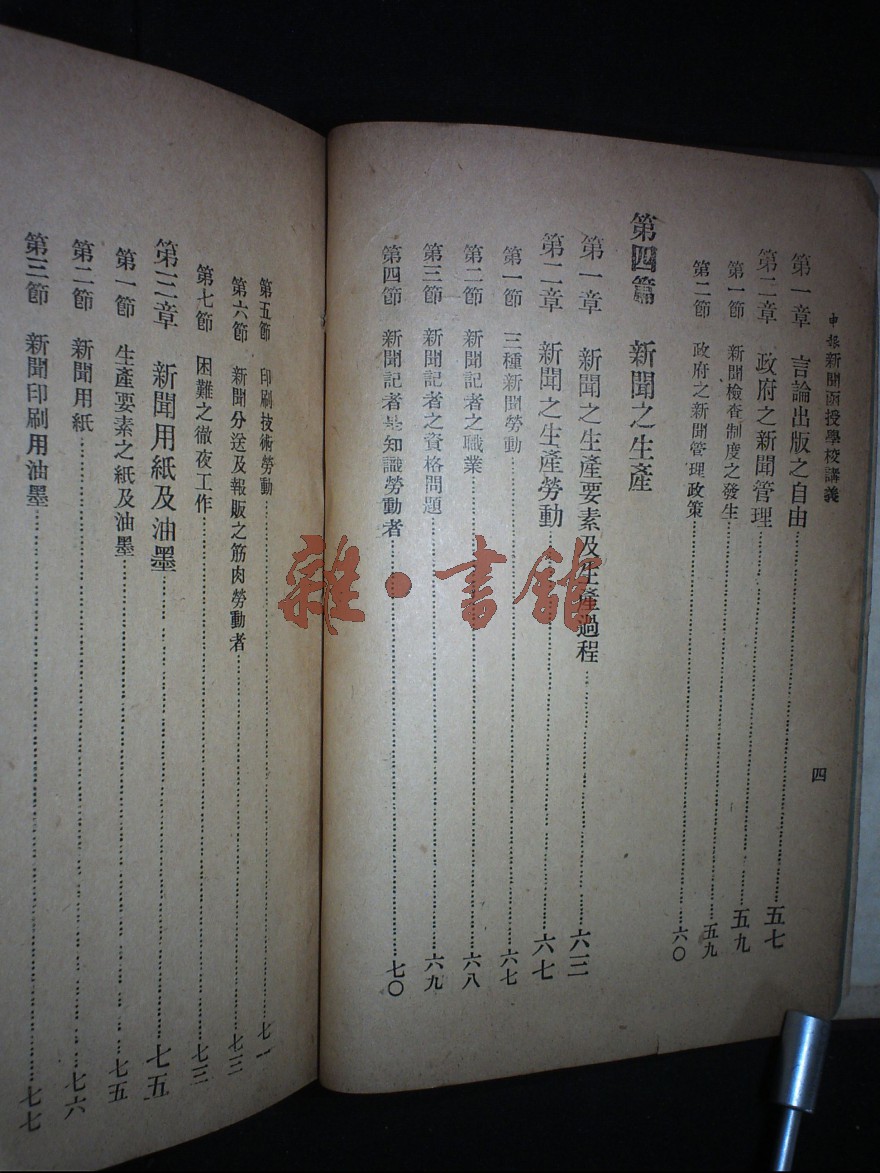 申報新聞函授學校講義
四
第一章 言論出版之自由 五七
第二章 政府之新聞管理 五九
第一節 新聞檢查制度之發生 五九
第二節 政府之新聞管理政策 六〇
第四篇 新聞之生產
第一章 新聞之生產要素及生產過程 六三
第二章 新聞之生產勞動 六七
第一節 三種新聞勞動 六七
第二節 新聞記者之職業 六八
第三節 新聞記者之資格問題 六九
第四節 新聞記者是知識勞動者 七〇
第五節 印刷技術勞動 七一
第六節 新聞分送及報販之筋肉勞動者 七三
第七節 困難之徹夜工作 七三
第三章 新聞用紙及油墨 七五
第一節 生產要素之紙及油墨 七五
第二節 新聞用紙 七六
第三節 新聞印刷用油墨 七七
雜·書館